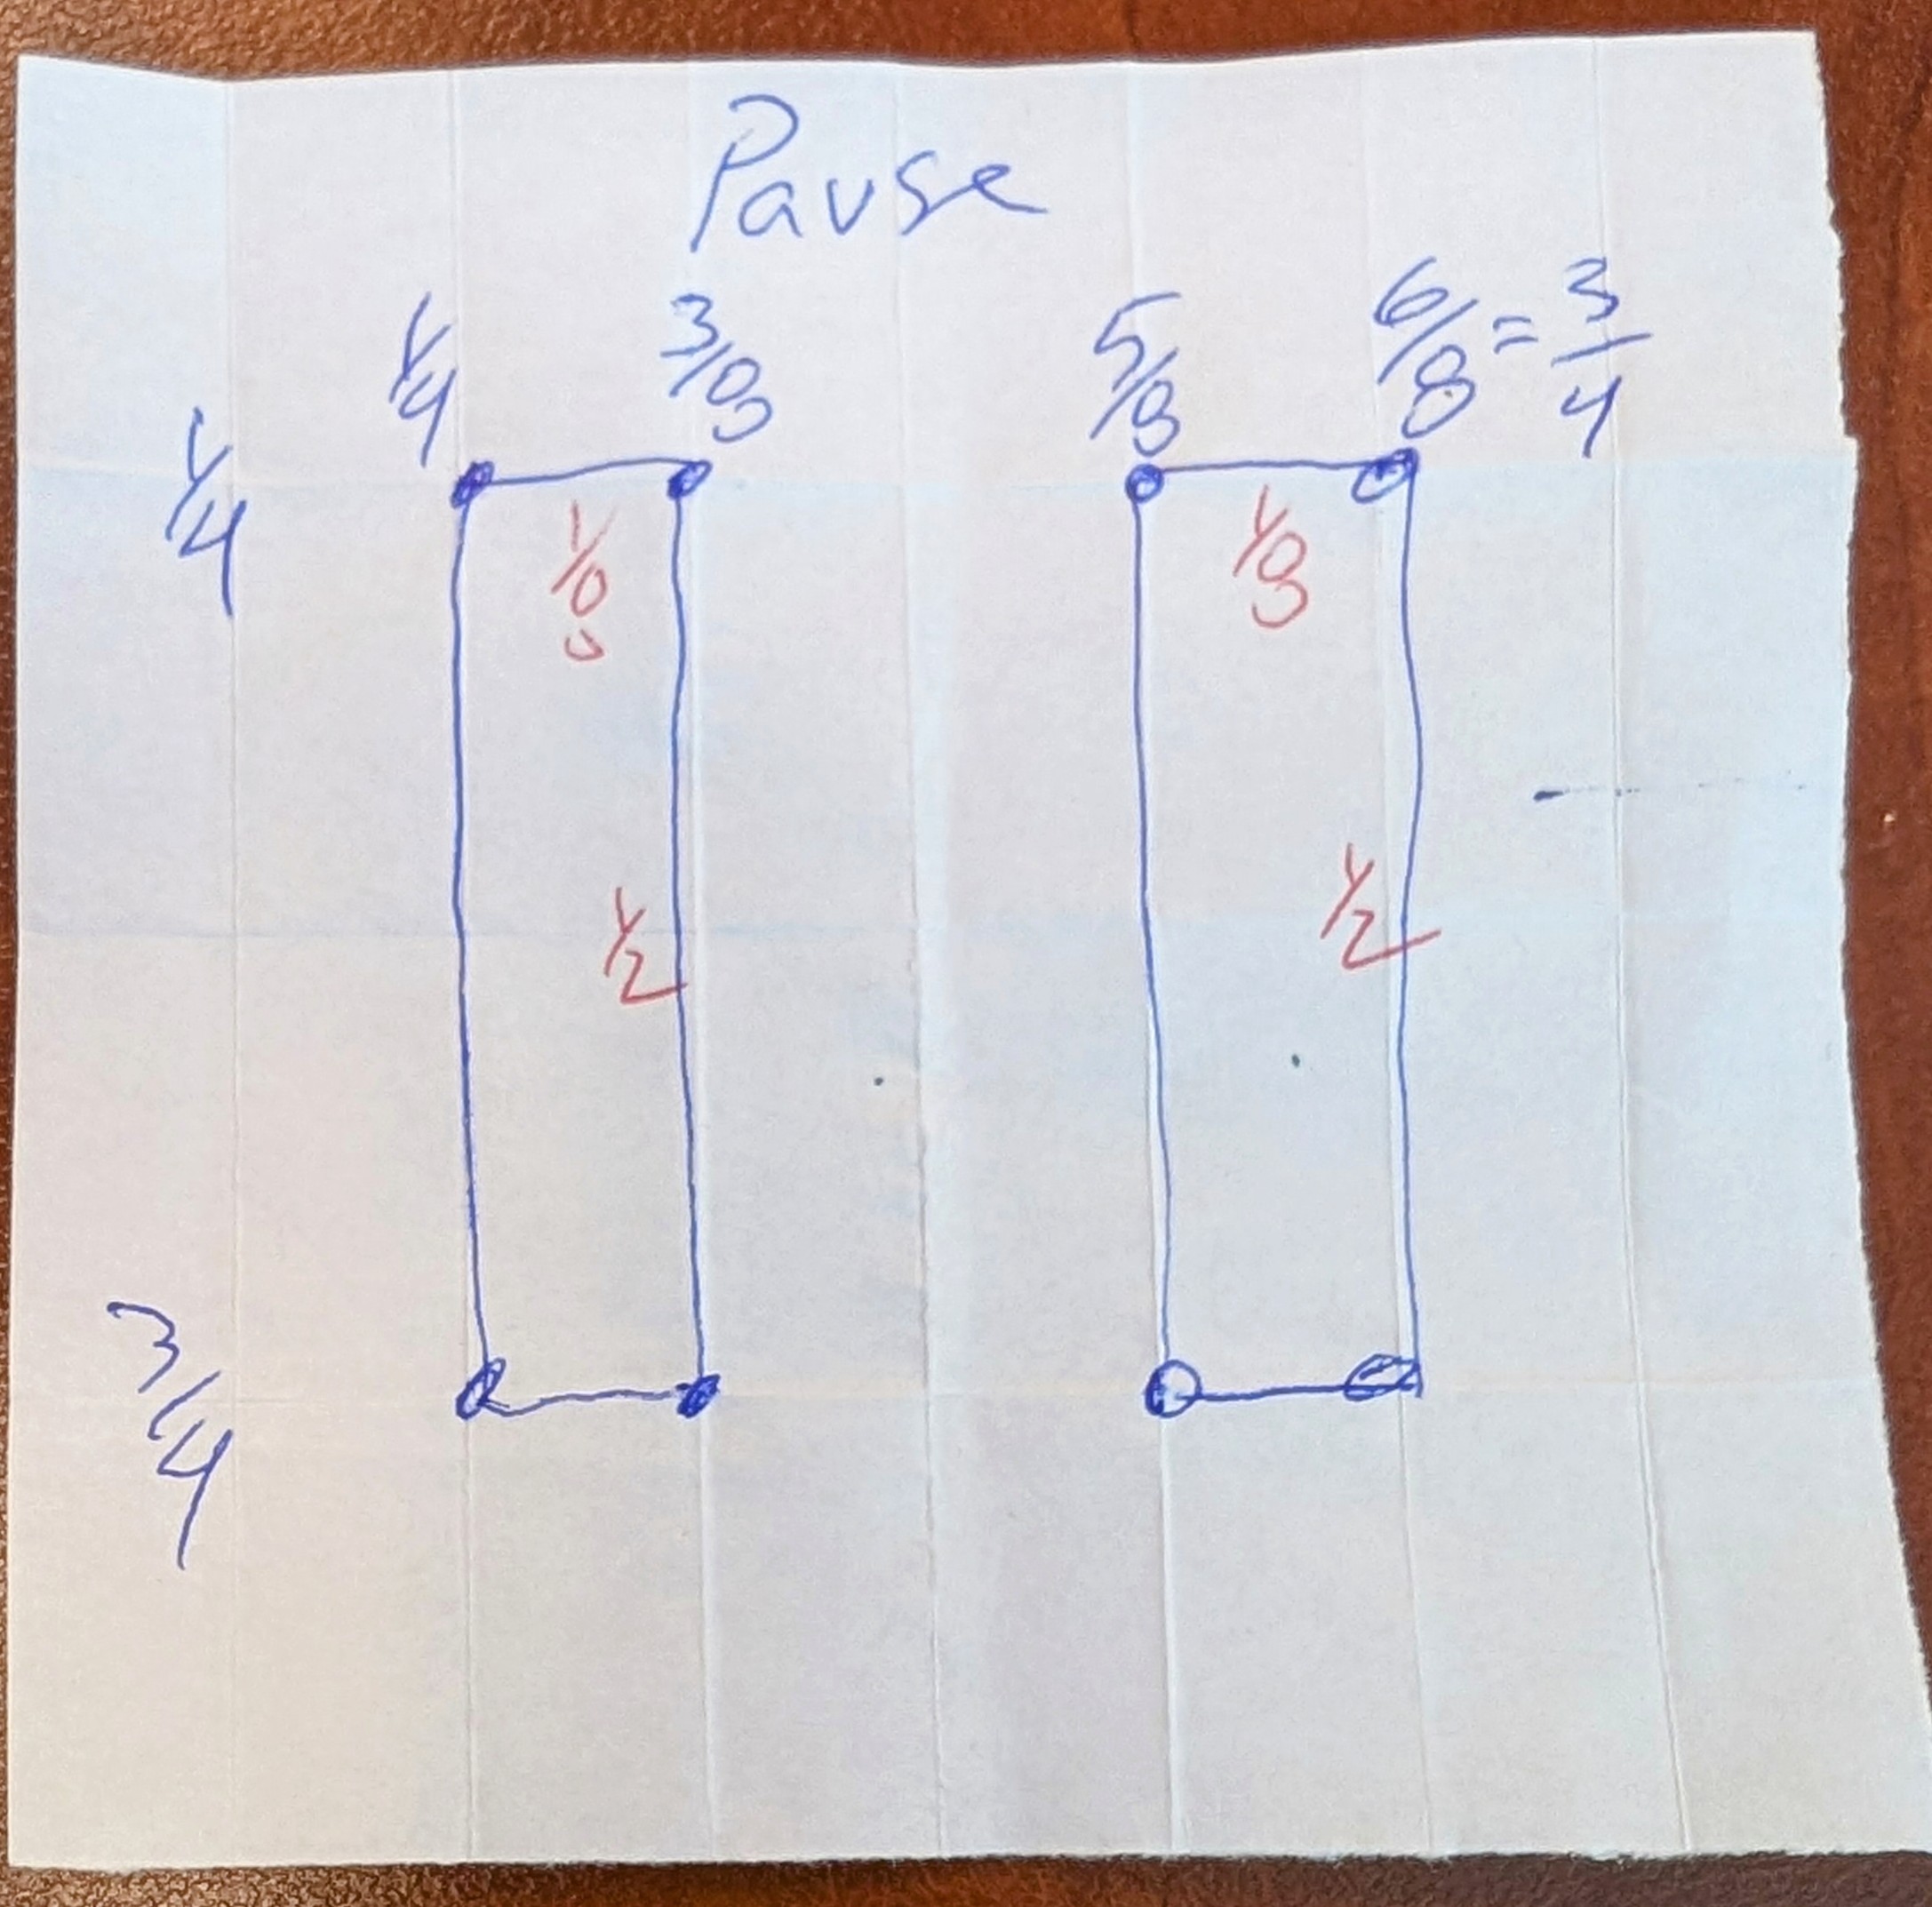 Pause
1/4 3/8 5/8 6/8 = 3/4
1/4
1/8 1/8
1/2 1/2
3/4